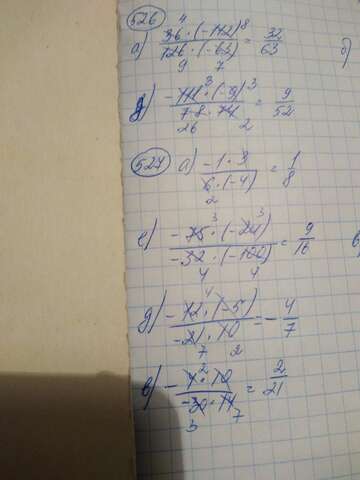 526
4
а) 36 · (-112) 8 / 126 · (-63) = 32/63
9 7
б)
д) -111 3 · (-9) 3 / 78 · 74 = 9/52
26 2
527 а) -1 · 3 / 6 · (-4) = 1/8
2
е) -75 3 · (-24) 3 / -32 · (-100) = 9/16
4 4
в)
д) -12 4 · (-5) / -21 · 10 = - 4/7
7 2
в) - 4 2 · 10 / -30 · 14 = 2/21
3 7